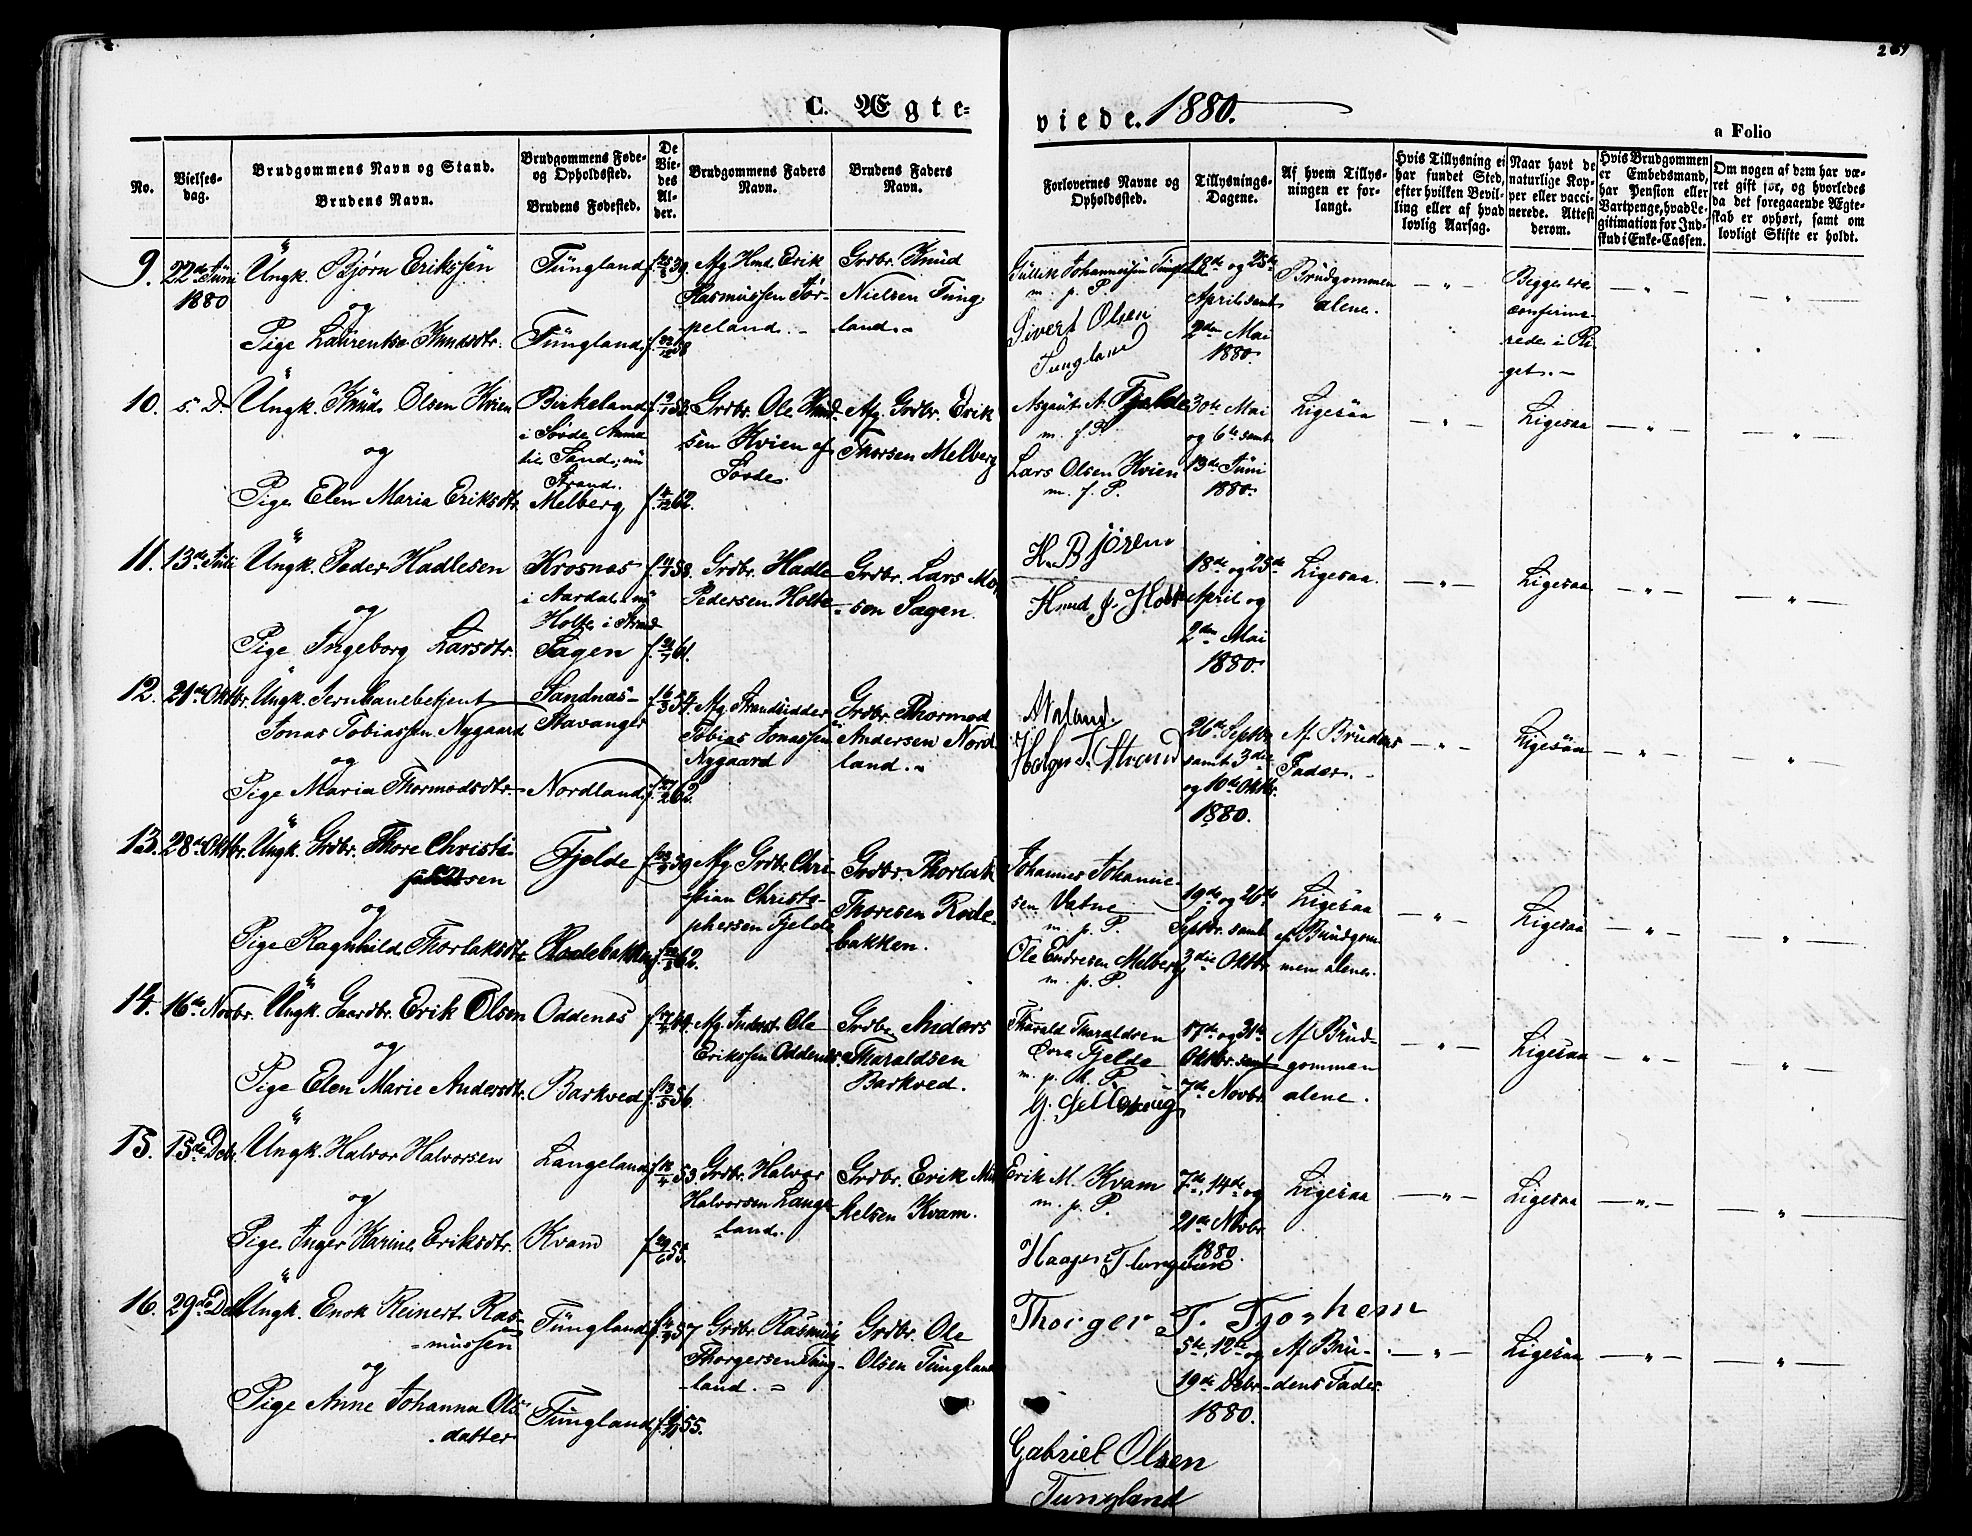 C. Ægte-
viede. 1880.
a Folio
No.
Vielses-
dag.
Brudgommens Navn og Stand.
Brudens Navn.
Brudgommens Føde-
og Opholdssted.
Brudens Fødested.
De
Vie-
des
Al-
der.
Brudgommens Faders
Navn.
Brudens Faders
Navn.
Forlovernes Navne og
Opholdssted.
Tillysnings-
Dagene.
Af hvem Tillys-
ningen er for-
langt.
Hvis Tillysning ei
har fundet Sted,
efter hvilken Bevil-
ling eller af hvad
lovlig Aarsag.
Naar havt de
naturlige Kop-
per eller vacci-
nerede. Attest
derom.
Hvis Brudgommen
er Embedsmand,
har Pension eller
Vartpenge, hvad Le-
gitimation for Ind-
skud i Enke-Cassen.
Om nogen af dem har væ-
ret gift før, og hvorledes
da det foregaaende Ægte-
skab er ophørt, samt om
lovligt Skifte er holdt.
9. 22de Juni
1880
Ungk. Bjørn Erikssen
og
Pige Laurentse Knudsdtr.
Tungland
Tungland
Afg. Hmd. Erik
Rasmussen Tør-
peland.
Grdbr. Knud
Nielsen Tung-
land.
Gullik Johannessen Tungland
m. p. P.
Sivert Olsen
Tungland
18de og 25de
April samt
2den Mai
1880.
Brudgommen
alene.
Begge ere
confirme-
rede i Ri-
get.
10. s. D.
Ungk. Knud Olsen Kvien
og
Pige Elen Maria Eriksdtr.
Birkeland
i Søvde Annex
til Sand, nu
Strand.
Melberg
Grdbr. Ole Knud-
sen Kvien af
Søvde.
Afg. Grdbr. Erik
Thorsen Melberg
Asgaut A. Fjelde
m. f. P.
Lars Olsen Kvien
m. f. P.
30te Mai
og 6te samt
13de Juni
1880.
Ligesaa
Ligesaa
11. 13de Juli
Ungk. Peder Hadlesen
og
Pige Ingeborg Larsdtr.
Krosnæs
i Aardal, nu
Holte i Strand
Sagen
Grdbr. Hadle
Pedersen Holte
Grdbr. Lars
sen Sagen.
H. Bjøren
18de og 25de
April og
2den Mai
1880.
Ligesaa.
Ligesaa
12. 21de Oktbr.
Ungk. Jernbanebetjent
Jonas Tobiassen Nygaard
og
Pige Maria Thormodsdtr.
Sandnæs-
Stavanger
Nordland
Afg. Strandsidder
Tobias Jonassen
Nygaard
Grdbr. Thormod
Andersen Nord-
land.
Holger T. Strand
26de Septbr.
samt 3die
og 10de Oktbr.
1880.
Af Brudens
Fader.
Ligesaa
13. 28de Oktbr.
Ungk. Grdbr. Thore Christi-
sen
og
Pige Ragnhild Thorlaksdtr.
Fjelde
Rodebakken
Afg. Grdbr. Chri-
stian Christo-
phersen Fjelde
Grdbr. Thorlak
Thoresen Rode-
bakken.
Johannes Johanne-
sen Vatne
m. p. P.
Ole Endresen Melberg
m. p. P.
19de og 26de
Septbr. samt
3die Oktbr.
Ligesaa
af Brudgom-
men alene.
Ligesaa
14. 16de Novbr.
Ungk. Gaardbr. Erik Olsen
og
Pige Elen Marie Andersdtr.
Oddenæs
Barkved
Afg. Inderst Ole
Erikssen Oddenæs
Grdbr. Anders
Tharaldsen
Barkved.
Tharald Tharaldsen
Øvra Fjelde
m. p. P.
17de og 31te
Oktbr. samt
7de Novbr.
Af Brud-
gommen
alene.
Ligesaa
15. 15de Debr.
Ungk. Halvor Halvorsen
og
Pige Inger Karine Eriksdtr.
Langeland
Kvam
Grdbr. Halvor
Halvorsen Lange-
land.
Grdbr. Erik Mik-
kelsen Kvam.
Erik M. Kvam
m. p. P.
7de, 14de og
21de Novbr.
1880.
Ligesaa
Ligesaa
16. 29de Debr.
Ungk. Enok Reinert Ras-
mussen
og
Pige Anne Johanna Ols-
datter
Tungland
Tungland
Grdbr. Rasmus
Thorgersen Tung-
land.
Grdbr. Ole
Olsen Tungland
Thorger T. Tjøshem
Gabriel Olsen
Tungland
5te, 12te og
19de Debr.
1880.
Af Bru-
dens Fader
Ligesaa